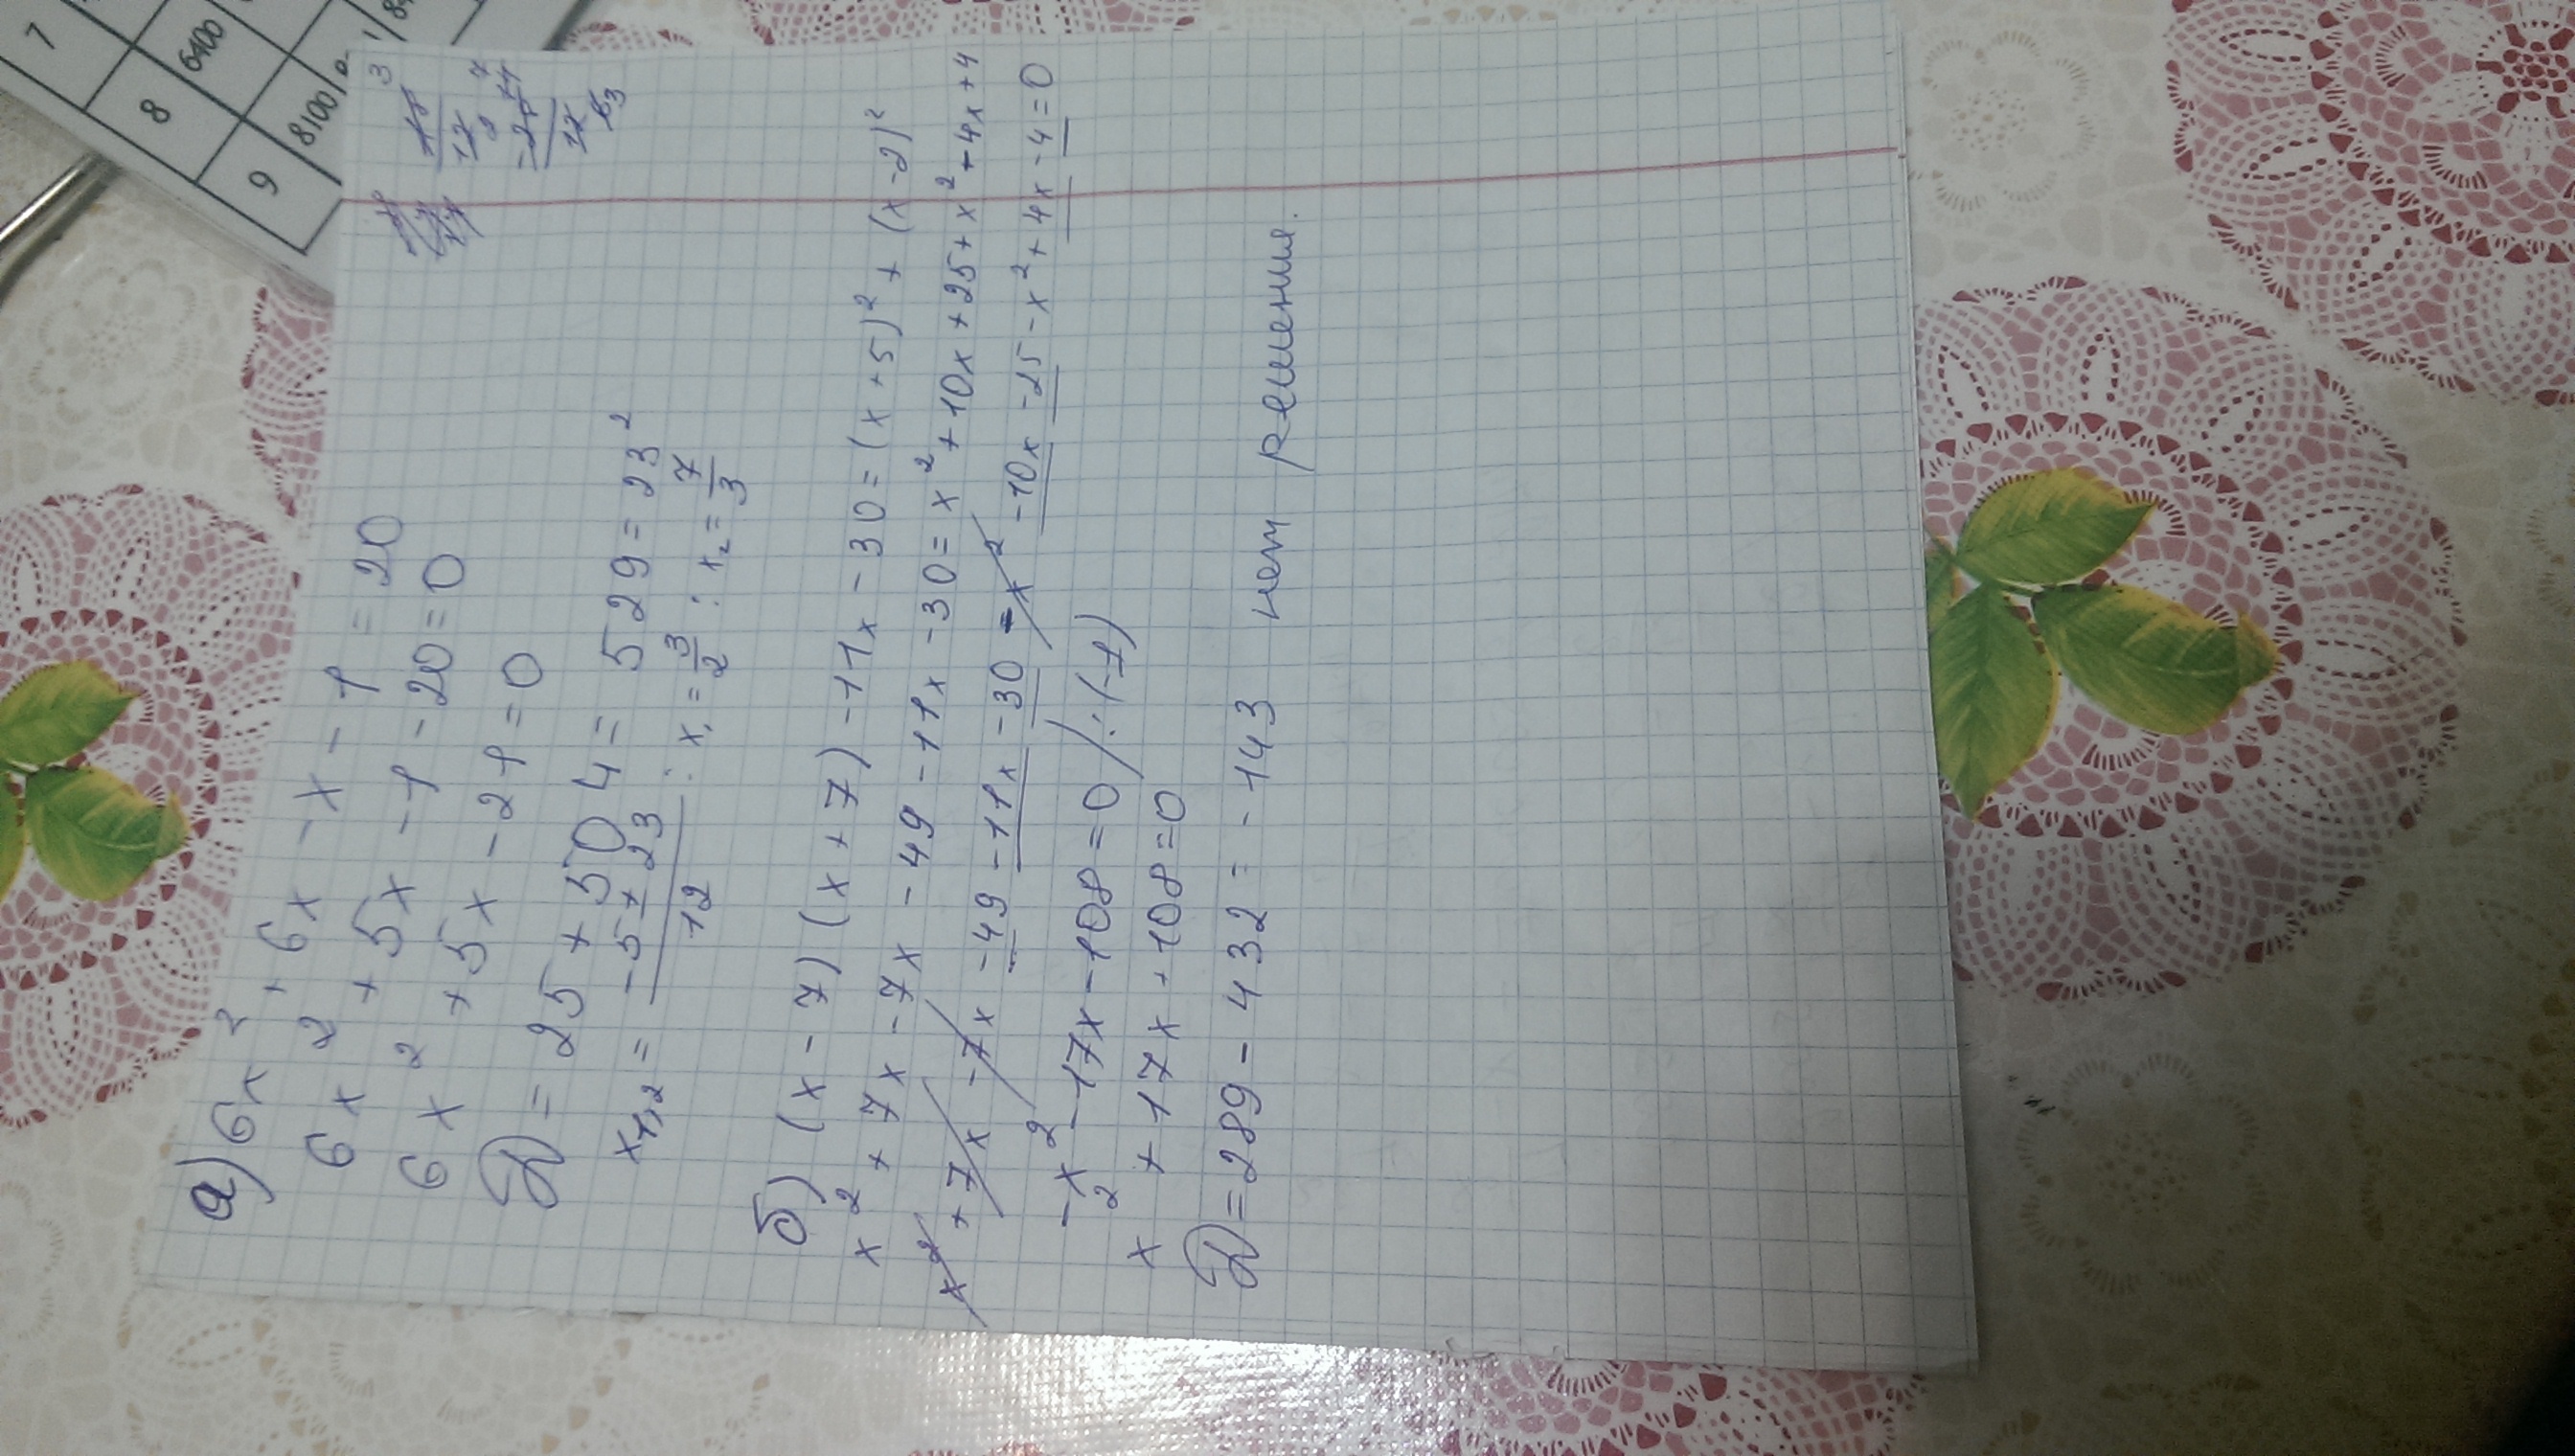 7
8
6400
9
8100
а) 6x² + 6x - x - 1 = 20
6x² + 5x - 1 - 20 = 0
6x² + 5x - 21 = 0
D = 25 + 504 = 529 = 23²
x₁,₂ = (-5 ± 23)/12 ; x₁ = 3/2 ; x₂ = 7/3
б) (x - 7)(x + 7) - 11x - 30 = (x + 5)² + (x - 2)²
x² + 7x - 7x - 49 - 11x - 30 = x² + 10x + 25 + x² - 4x + 4
x² + 7x - 7x - 49 - 11x - 30 - x² - 10x - 25 - x² + 4x - 4 = 0
-x² - 17x - 108 = 0 /:(-1)
x² + 17x + 108 = 0
D = 289 - 432 = -143 нет решения.